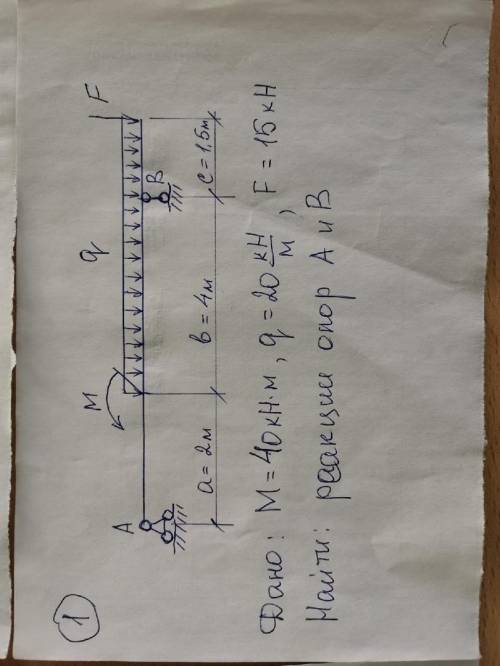 1
M q F
A B
a = 2м в = 4м c = 1,5м
Дано: M = 40 кН·м, q = 20 кН/м, F = 15 кН
Найти: реакции опор A и B